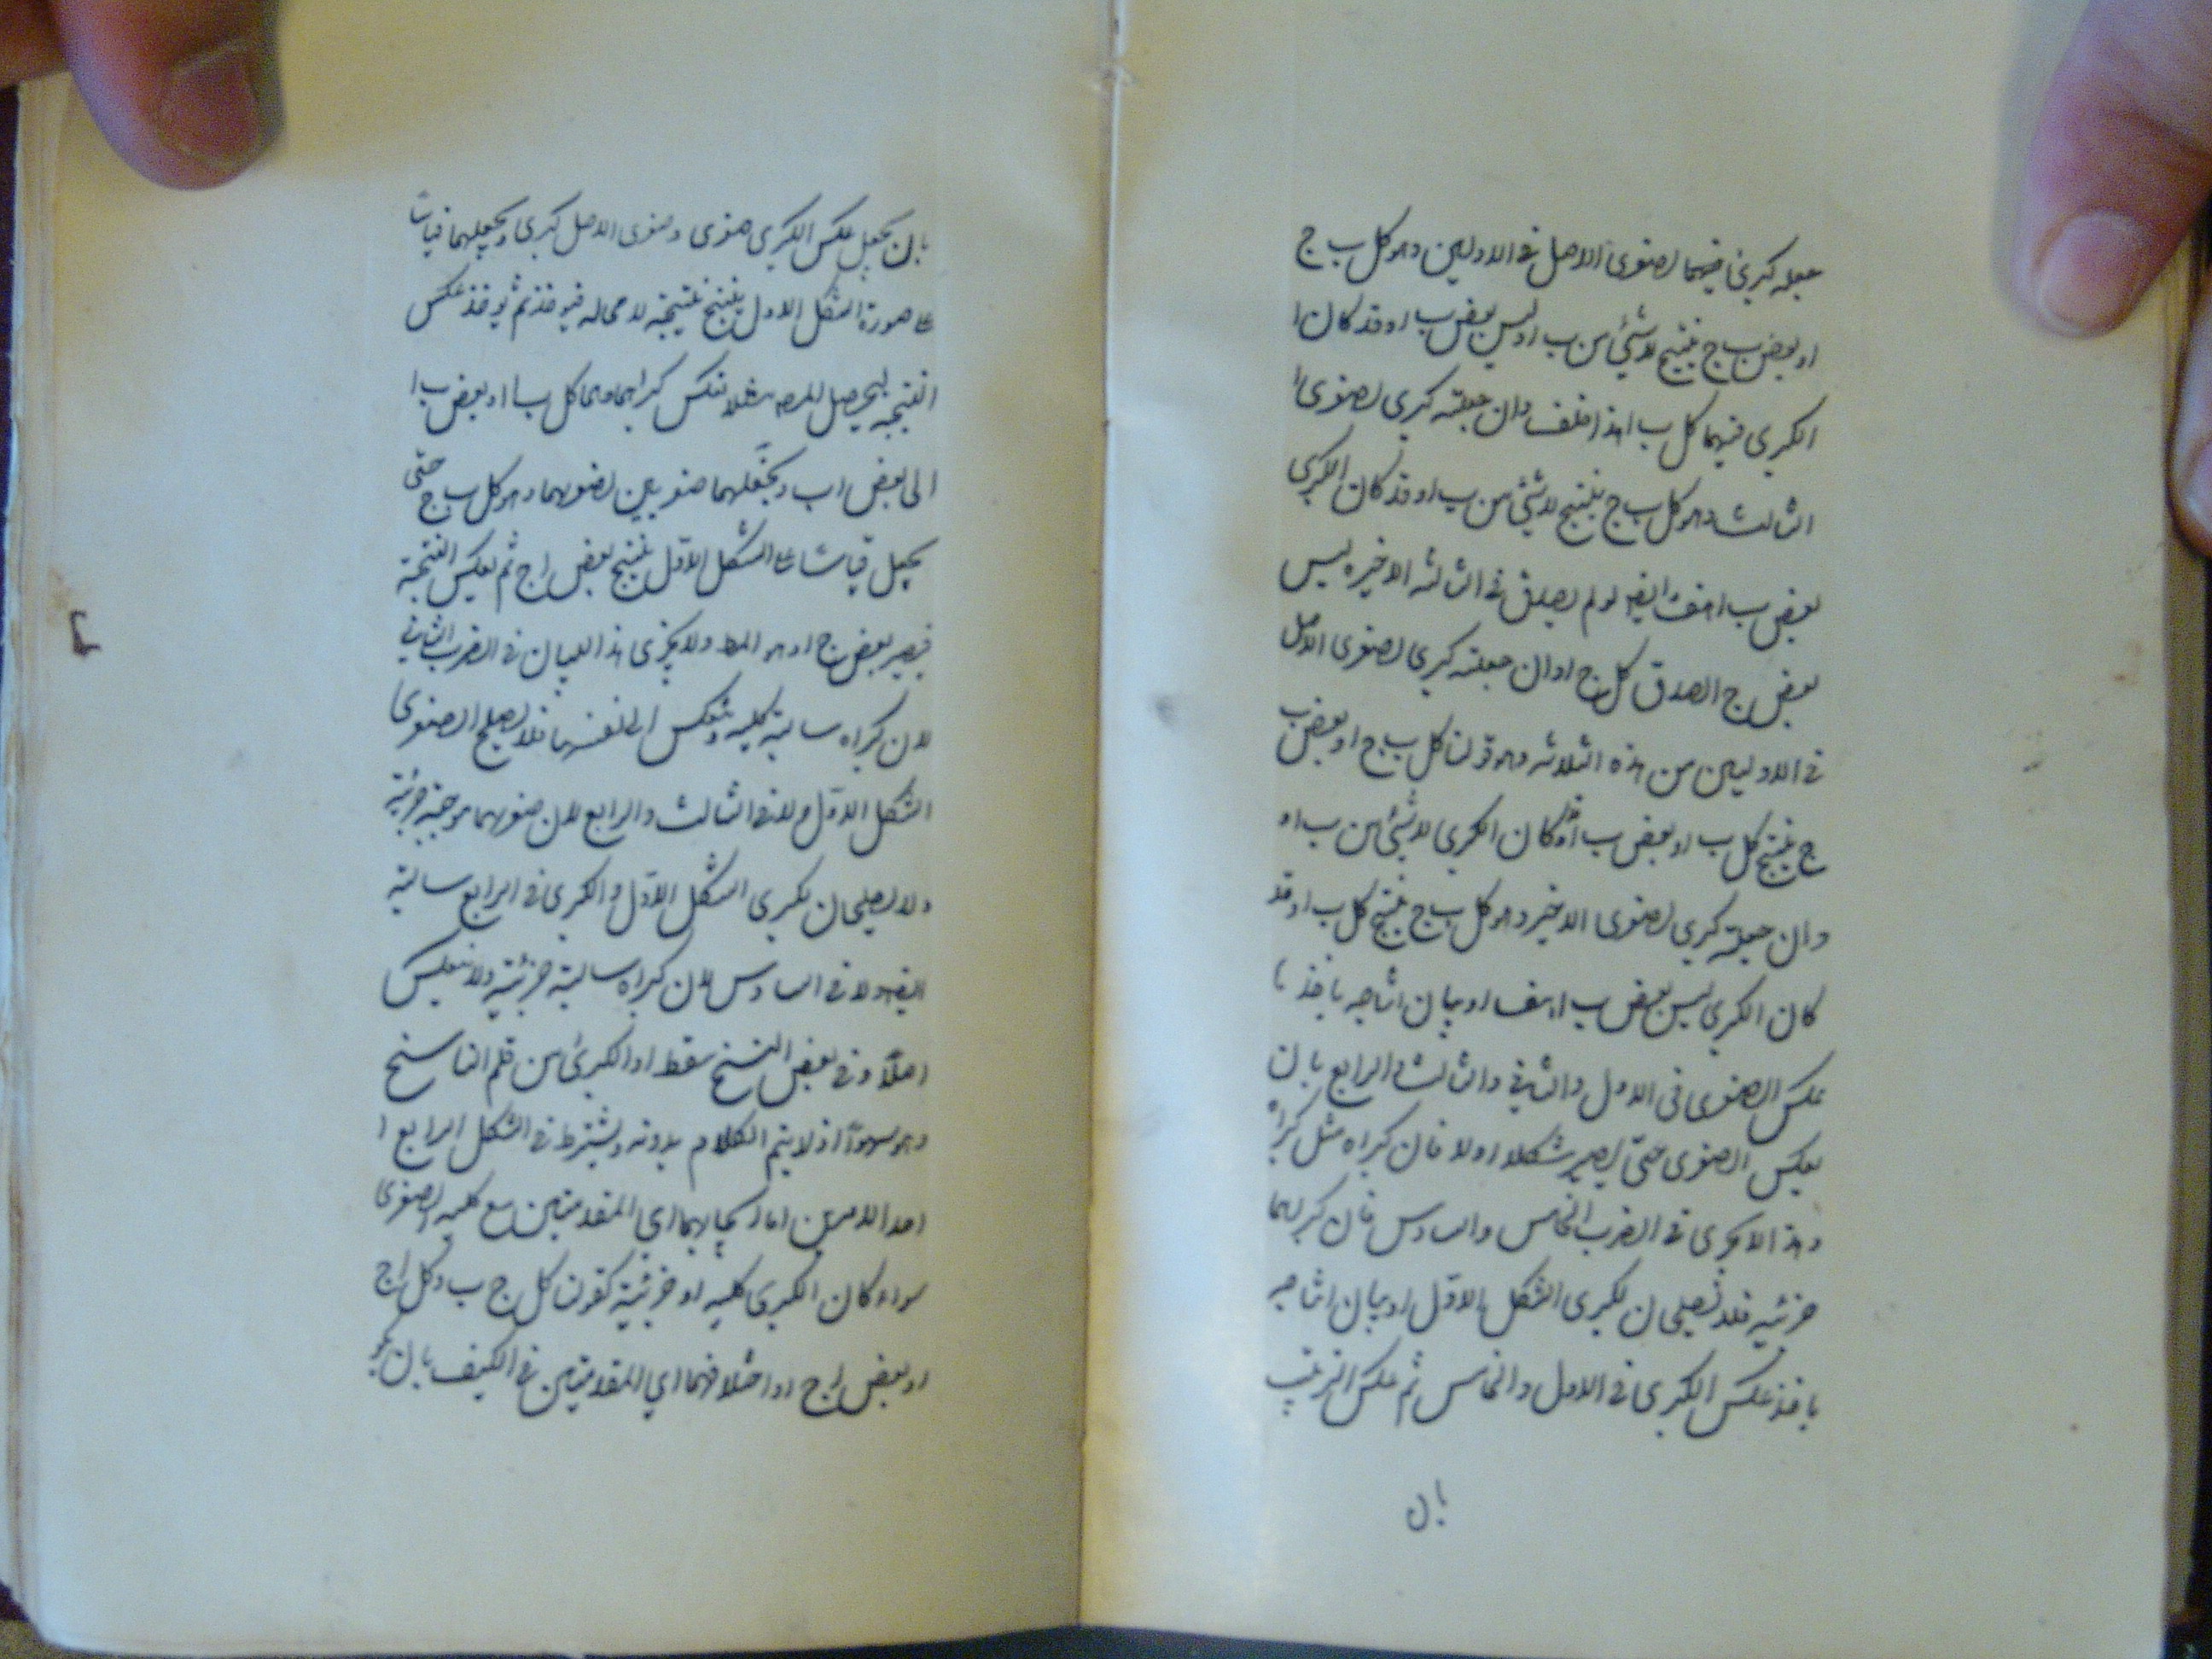 جعله كبرى فيهما لصغرى الاصل فى الاوليين وهو كل ب ج
او بعض ب ج ينتج لا شيئ من ب او ليس بعض ب ا وقد كان ا
الكبرى فيهما كل ب ا هذا خلف وان جعلته كبرى لصغرى ا
الثالث وهو كل ب ج ينتج لا شيئ من ب ا وقد كان الكبرى
بعض ب ا هف ايضه لو لم يصدق فى الثالثه الاخيره ليس
بعض ج ا لصدق كل ج ا وان جعلته كبرى لصغرى الاصل
فى الاوليين من هذه الثلاثه وهو قولنا كل ب ج او بعض ب
ج ينتج كل ب ا و بعض ب ا وكان الكبرى لا شيئ من ب ا و
وان جعلته كبرى لصغرى الاخير وهو كل ب ج ينتج كل ب ا وقد
كان الكبرى ليس بعض ب ا هف او بيان انتاجه باخذ
عكس الصغرى فى الاول والثانى والثالث والرابع بان
يعكس الصغرى حتى يصير شكلا اولا فان كبراه مثل كبراه
وهذا لا يجرى فى الضرب الخامس والسادس فان كبريهما
جزئيه فلا تصلحان لكبرى الشكل الاول او بيان انتاجه
باخذ عكس الكبرى فى الاول والخامس ثم عكس الترتيب
بان
بان يجعل عكس الكبرى صغرى وصغرى الاصل كبرى ويجعلهما قياسا
على صورة الشكل الاول ينتج نتيجة لا محاله فيؤخذ ثم يؤخذ عكس
النتيجه ليحصل المط مثلا تعكس كبراهما وهما كل ب ا او بعض ب ا
الى بعض ا ب ويجعلهما صغريين لصغريهما وهو كل ب ج حتى
يجعل قياسا على الشكل الاول ينتج بعض ا ج ثم يعكس النتيجة
فيصير بعض ج ا وهو المط ولا يجرى هذا البيان فى الضرب الثانى
لان كبراه سالبة كليه وتنعكس الى نفسها فلا يصلح الصغرى
الشكل الاول ولا فى الثالث والرابع لان صغريهما موجبة جزئية
ولا يصلحان لكبرى الشكل الاول والكبرى فى الرابع سالبة
ايضه ولا فى السادس لان كبراه سالبة جزئية ولا تنعكس
اصلا وفى بعض النسخ سقط او الكبرى من قلم الناسخ
وهو سهو اذ لا يتم الكلام بدونه ويشترط فى الشكل الرابع ا
احد الامرين اما ايجابهما اي المقدمتين مع كليه الصغرى
سواء كان الكبرى كليه او جزئية كقولنا كل ج ب وكل ا ج
او بعض ا ج او اختلافهما اي المقدمتين فى الكيف بان